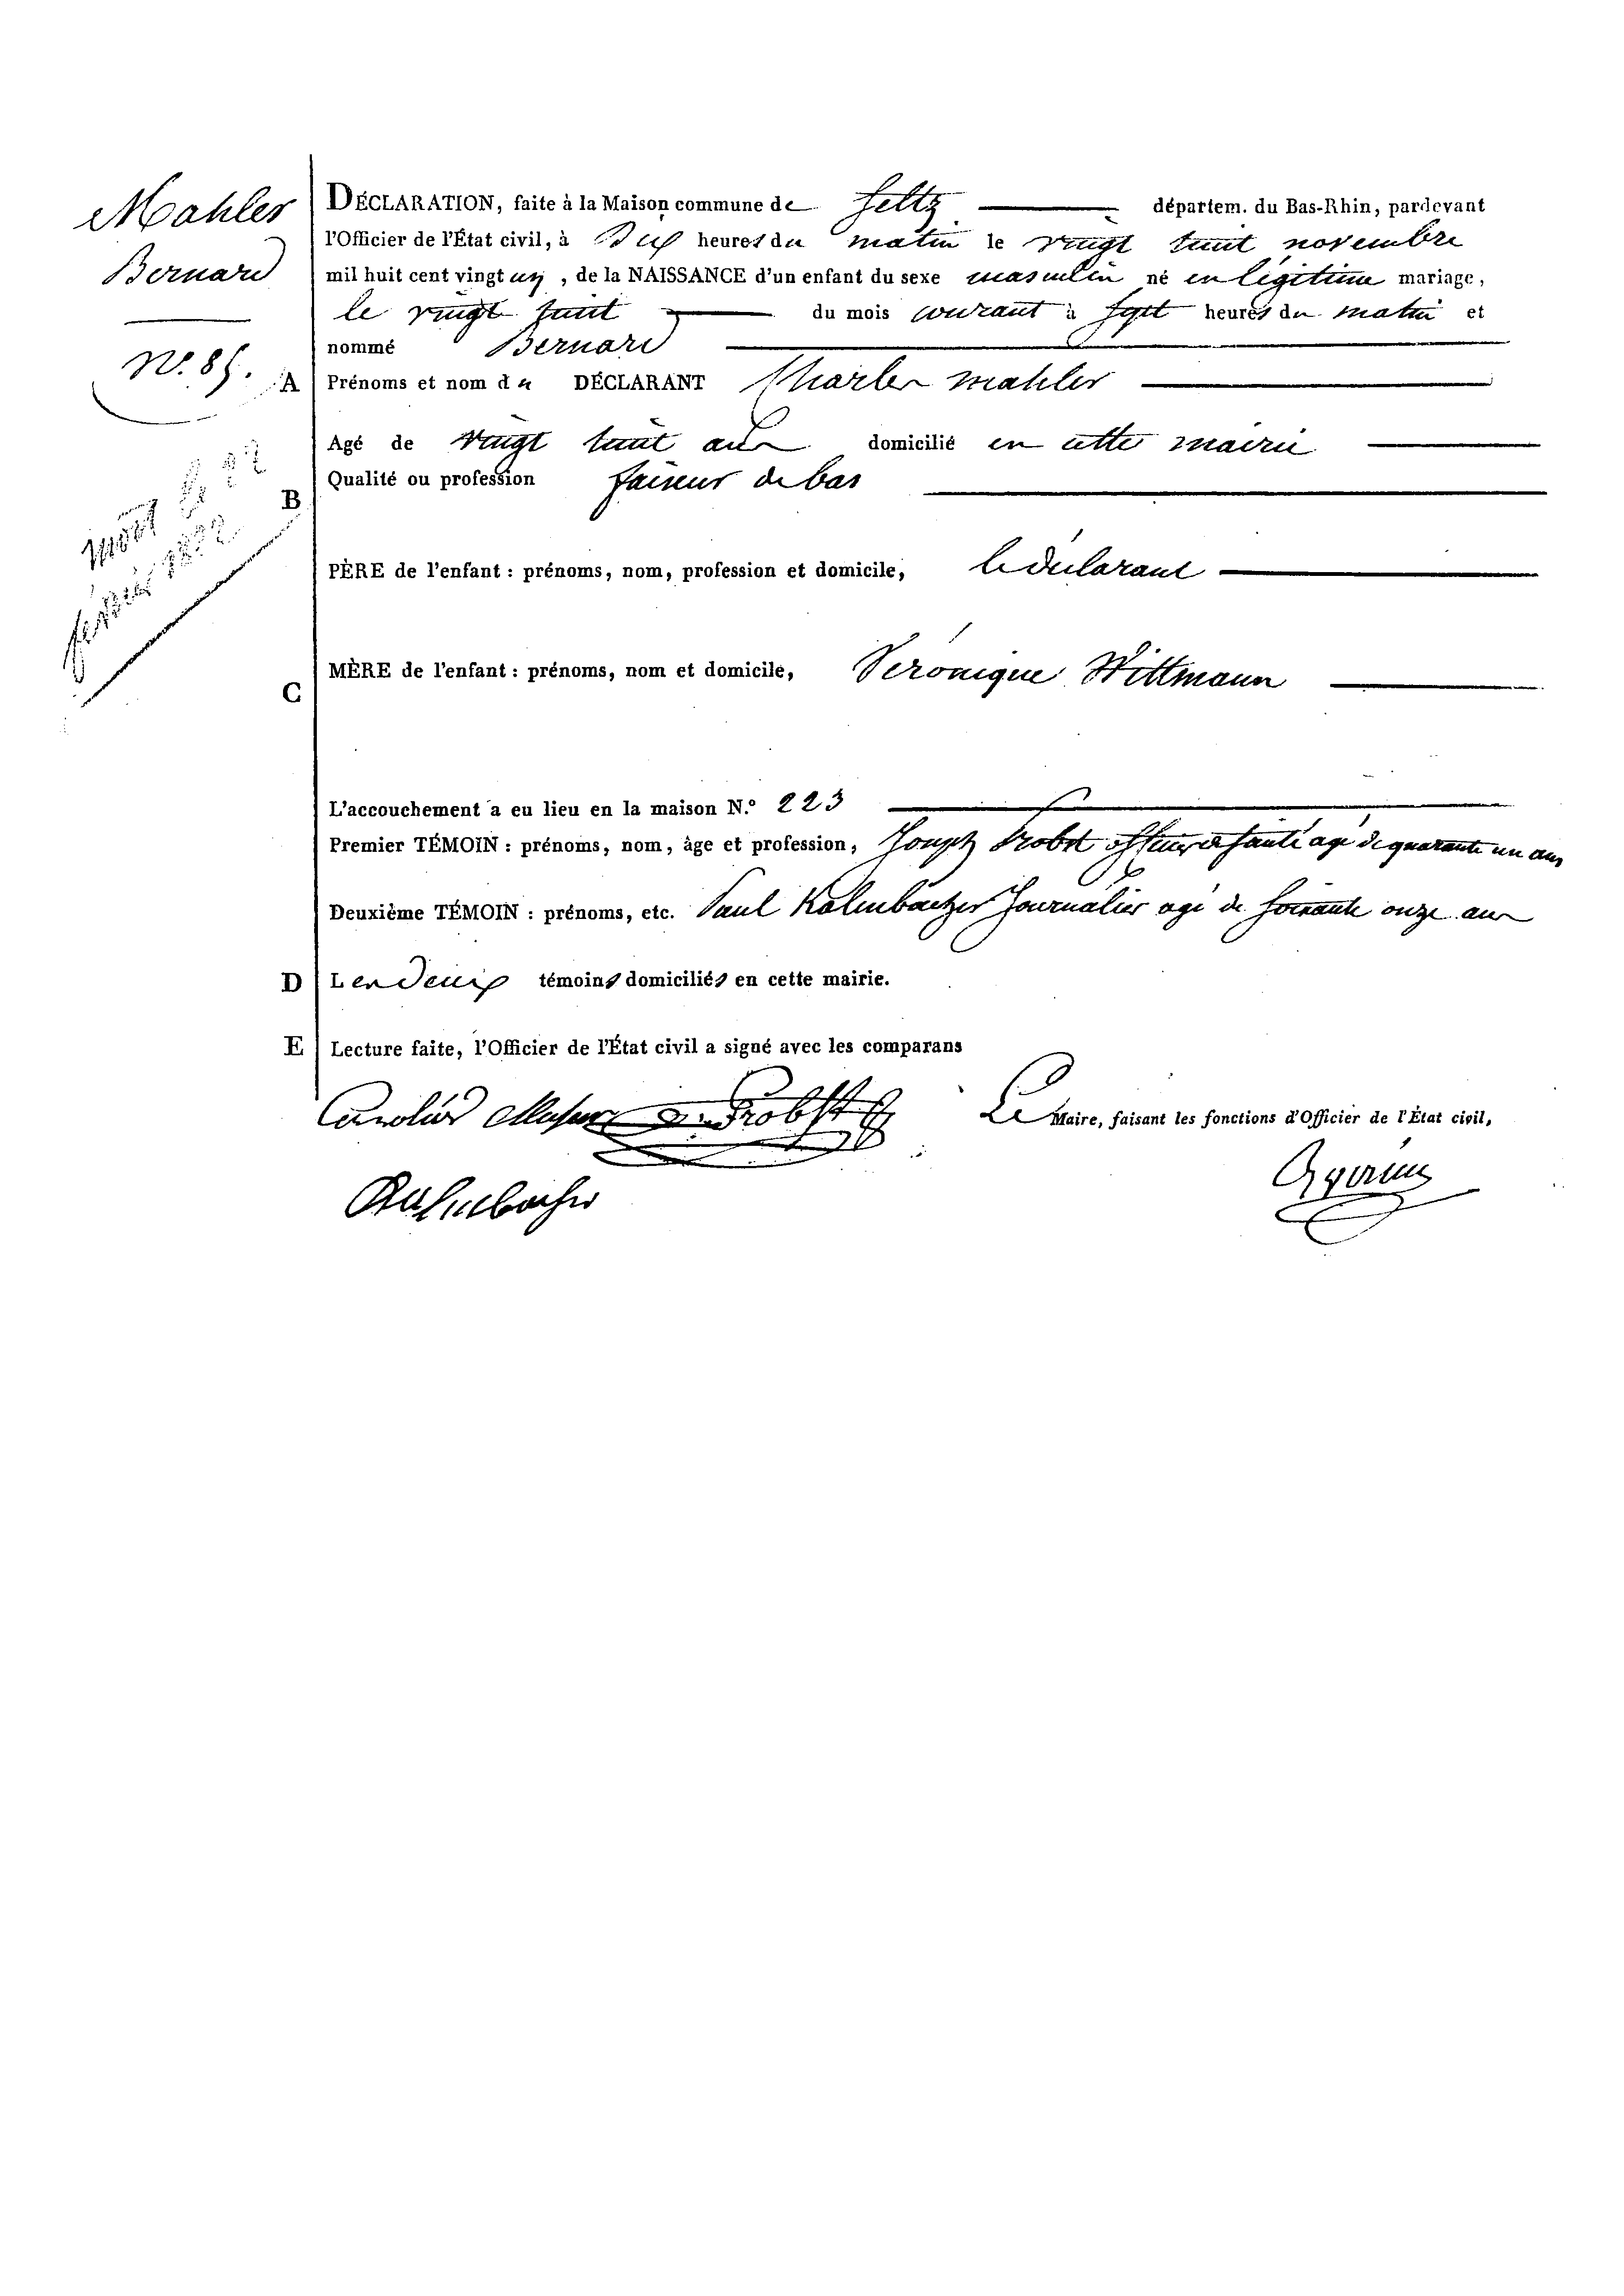 Mahler
Bernard
N.º 85.
DÉCLARATION, faite à la Maison commune de Seltz départem. du Bas-Rhin, pardevant
l'Officier de l'État civil, à Dix heures du matin le vingt huit novembre
mil huit cent vingt un, de la NAISSANCE d'un enfant du sexe masculin né en légitime mariage,
le vingt huit du mois courant à sept heures du matin et
nommé Bernard
A Prénoms et nom du DÉCLARANT Charles Mahler
Agé de vingt huit ans domicilié en cette mairie
Qualité ou profession faiseur de bas
mort le 22
février 1822
B
PÈRE de l'enfant : prénoms, nom, profession et domicile, le déclarant
MÈRE de l'enfant : prénoms, nom et domicile, Véronique Wittmann
C
L'accouchement a eu lieu en la maison N.º 223
Premier TÉMOIN : prénoms, nom, âge et profession, Joseph Probst officier de santé agé de quarante un ans
Deuxième TÉMOIN : prénoms, etc. Paul Kalmbacher Journalier agé de soixante onze ans
D Les deux témoins domiciliés en cette mairie.
E Lecture faite, l'Officier de l'État civil a signé avec les comparans
Probst
Le Maire, faisant les fonctions d'Officier de l'État civil,